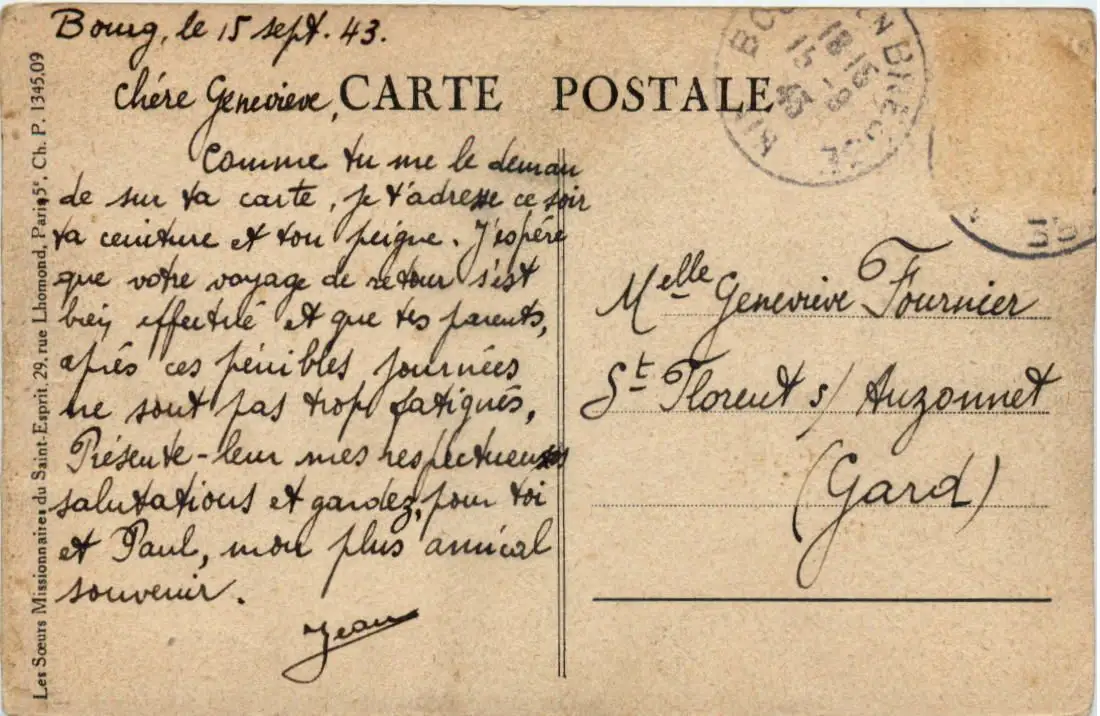 Bourg, le 15 sept. 43.
Chére Geneviève,
CARTE POSTALE
Comme tu me le deman
de sur ta carte, je t'adresse ce soir
ta ceinture et ton peigne. J'espére
que votre voyage de retour s'est
bien effectué et que tes parents,
aprés ces pénibles journées
ne sont pas trop fatigués.
Présente-leur mes respectueuses
salutations et gardez, pour toi
et Paul, mon plus amical
souvenir.
Jean
Melle Geneviève Fournier
St Florent s/ Auzonnet
(Gard)
18 15
15 -9
43
BRESSE
Les Sœurs Missionnaires du Saint-Esprit, 29, rue Lhomond, Paris, 5e, Ch. P. 1345.09